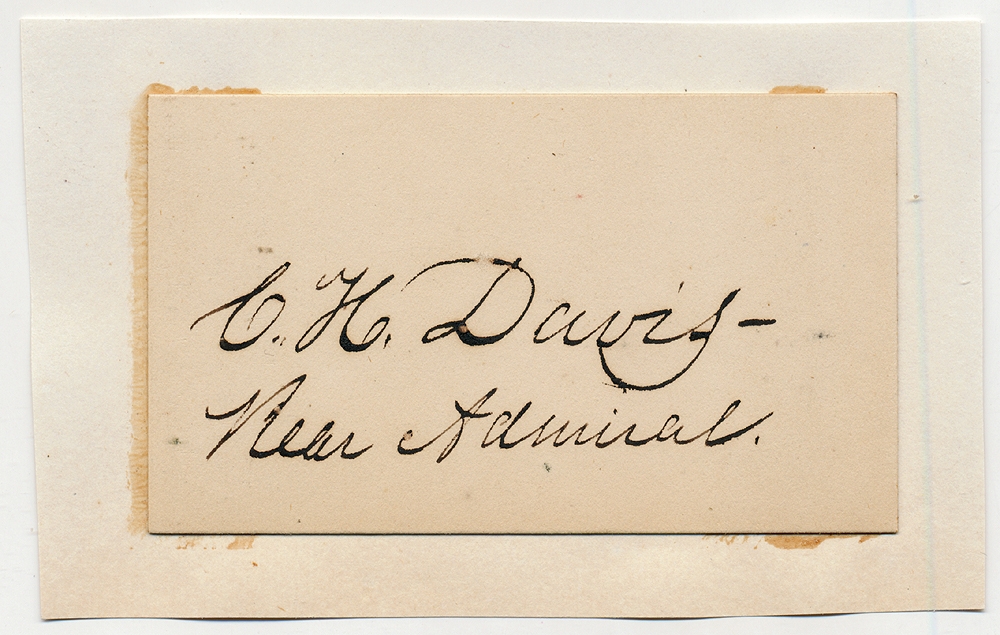 C. H. Davis-
Rear Admiral.